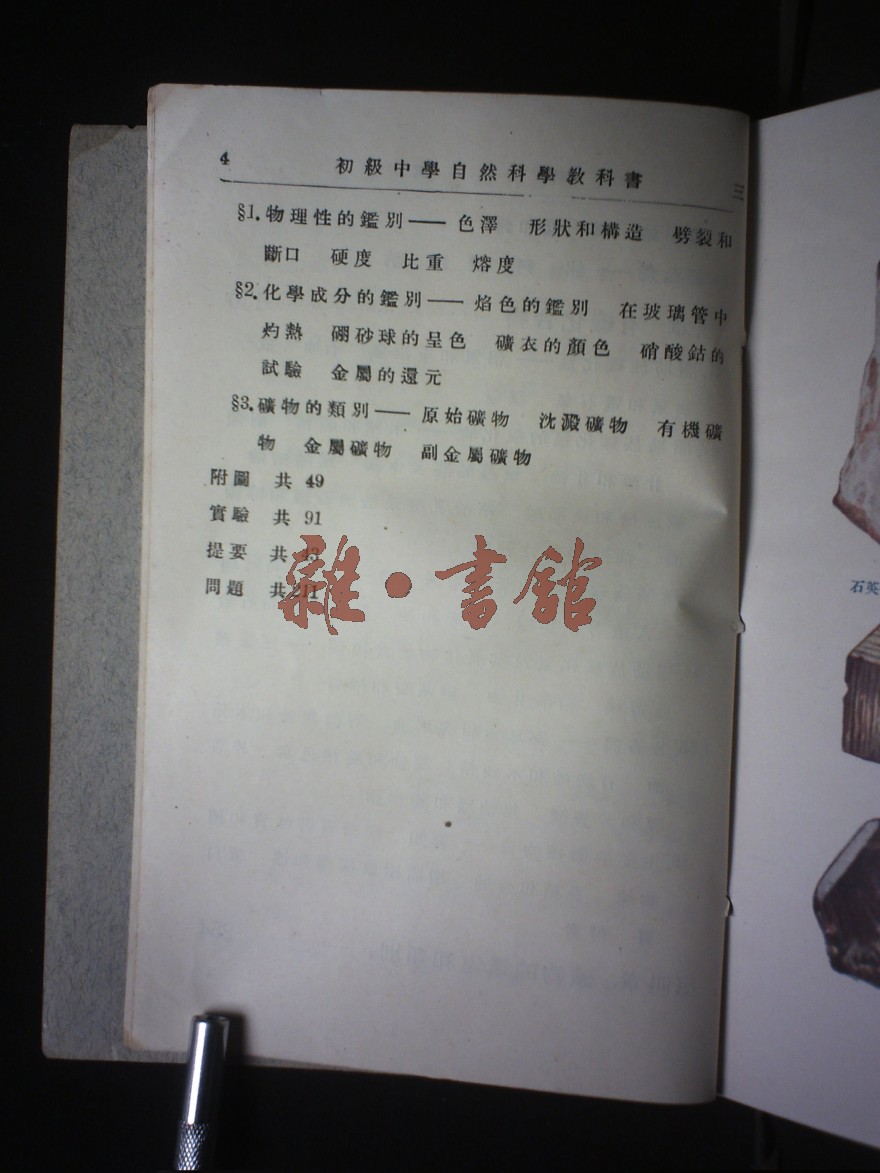 4 初級中學自然科學教科書
§1.物理性的鑑別—— 色澤 形狀和構造 劈裂和
斷口 硬度 比重 熔度
§2.化學成分的鑑別—— 焰色的鑑別 在玻璃管中
灼熱 硼砂球的呈色 礦衣的顏色 硝酸鈷的
試驗 金屬的還元
§3.礦物的類別—— 原始礦物 沈澱礦物 有機礦
物 金屬礦物 副金屬礦物
附圖 共 49
實驗 共 91
提要 共 43
問題 共211
雜·書館
三
石英